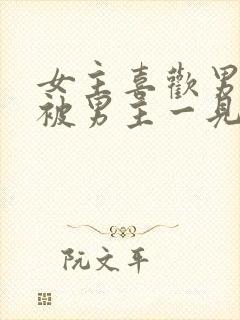 女主喜歡男
被男主一見
阮文平